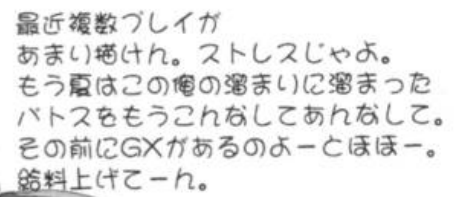 最近複数プレイが
あまり描けん。ストレスじゃよ。
もう夏はこの俺の溜まりに溜まった
パトスをもうこんなしてあんなして。
その前にGXがあるのよーとほほー。
給料上げてーん。